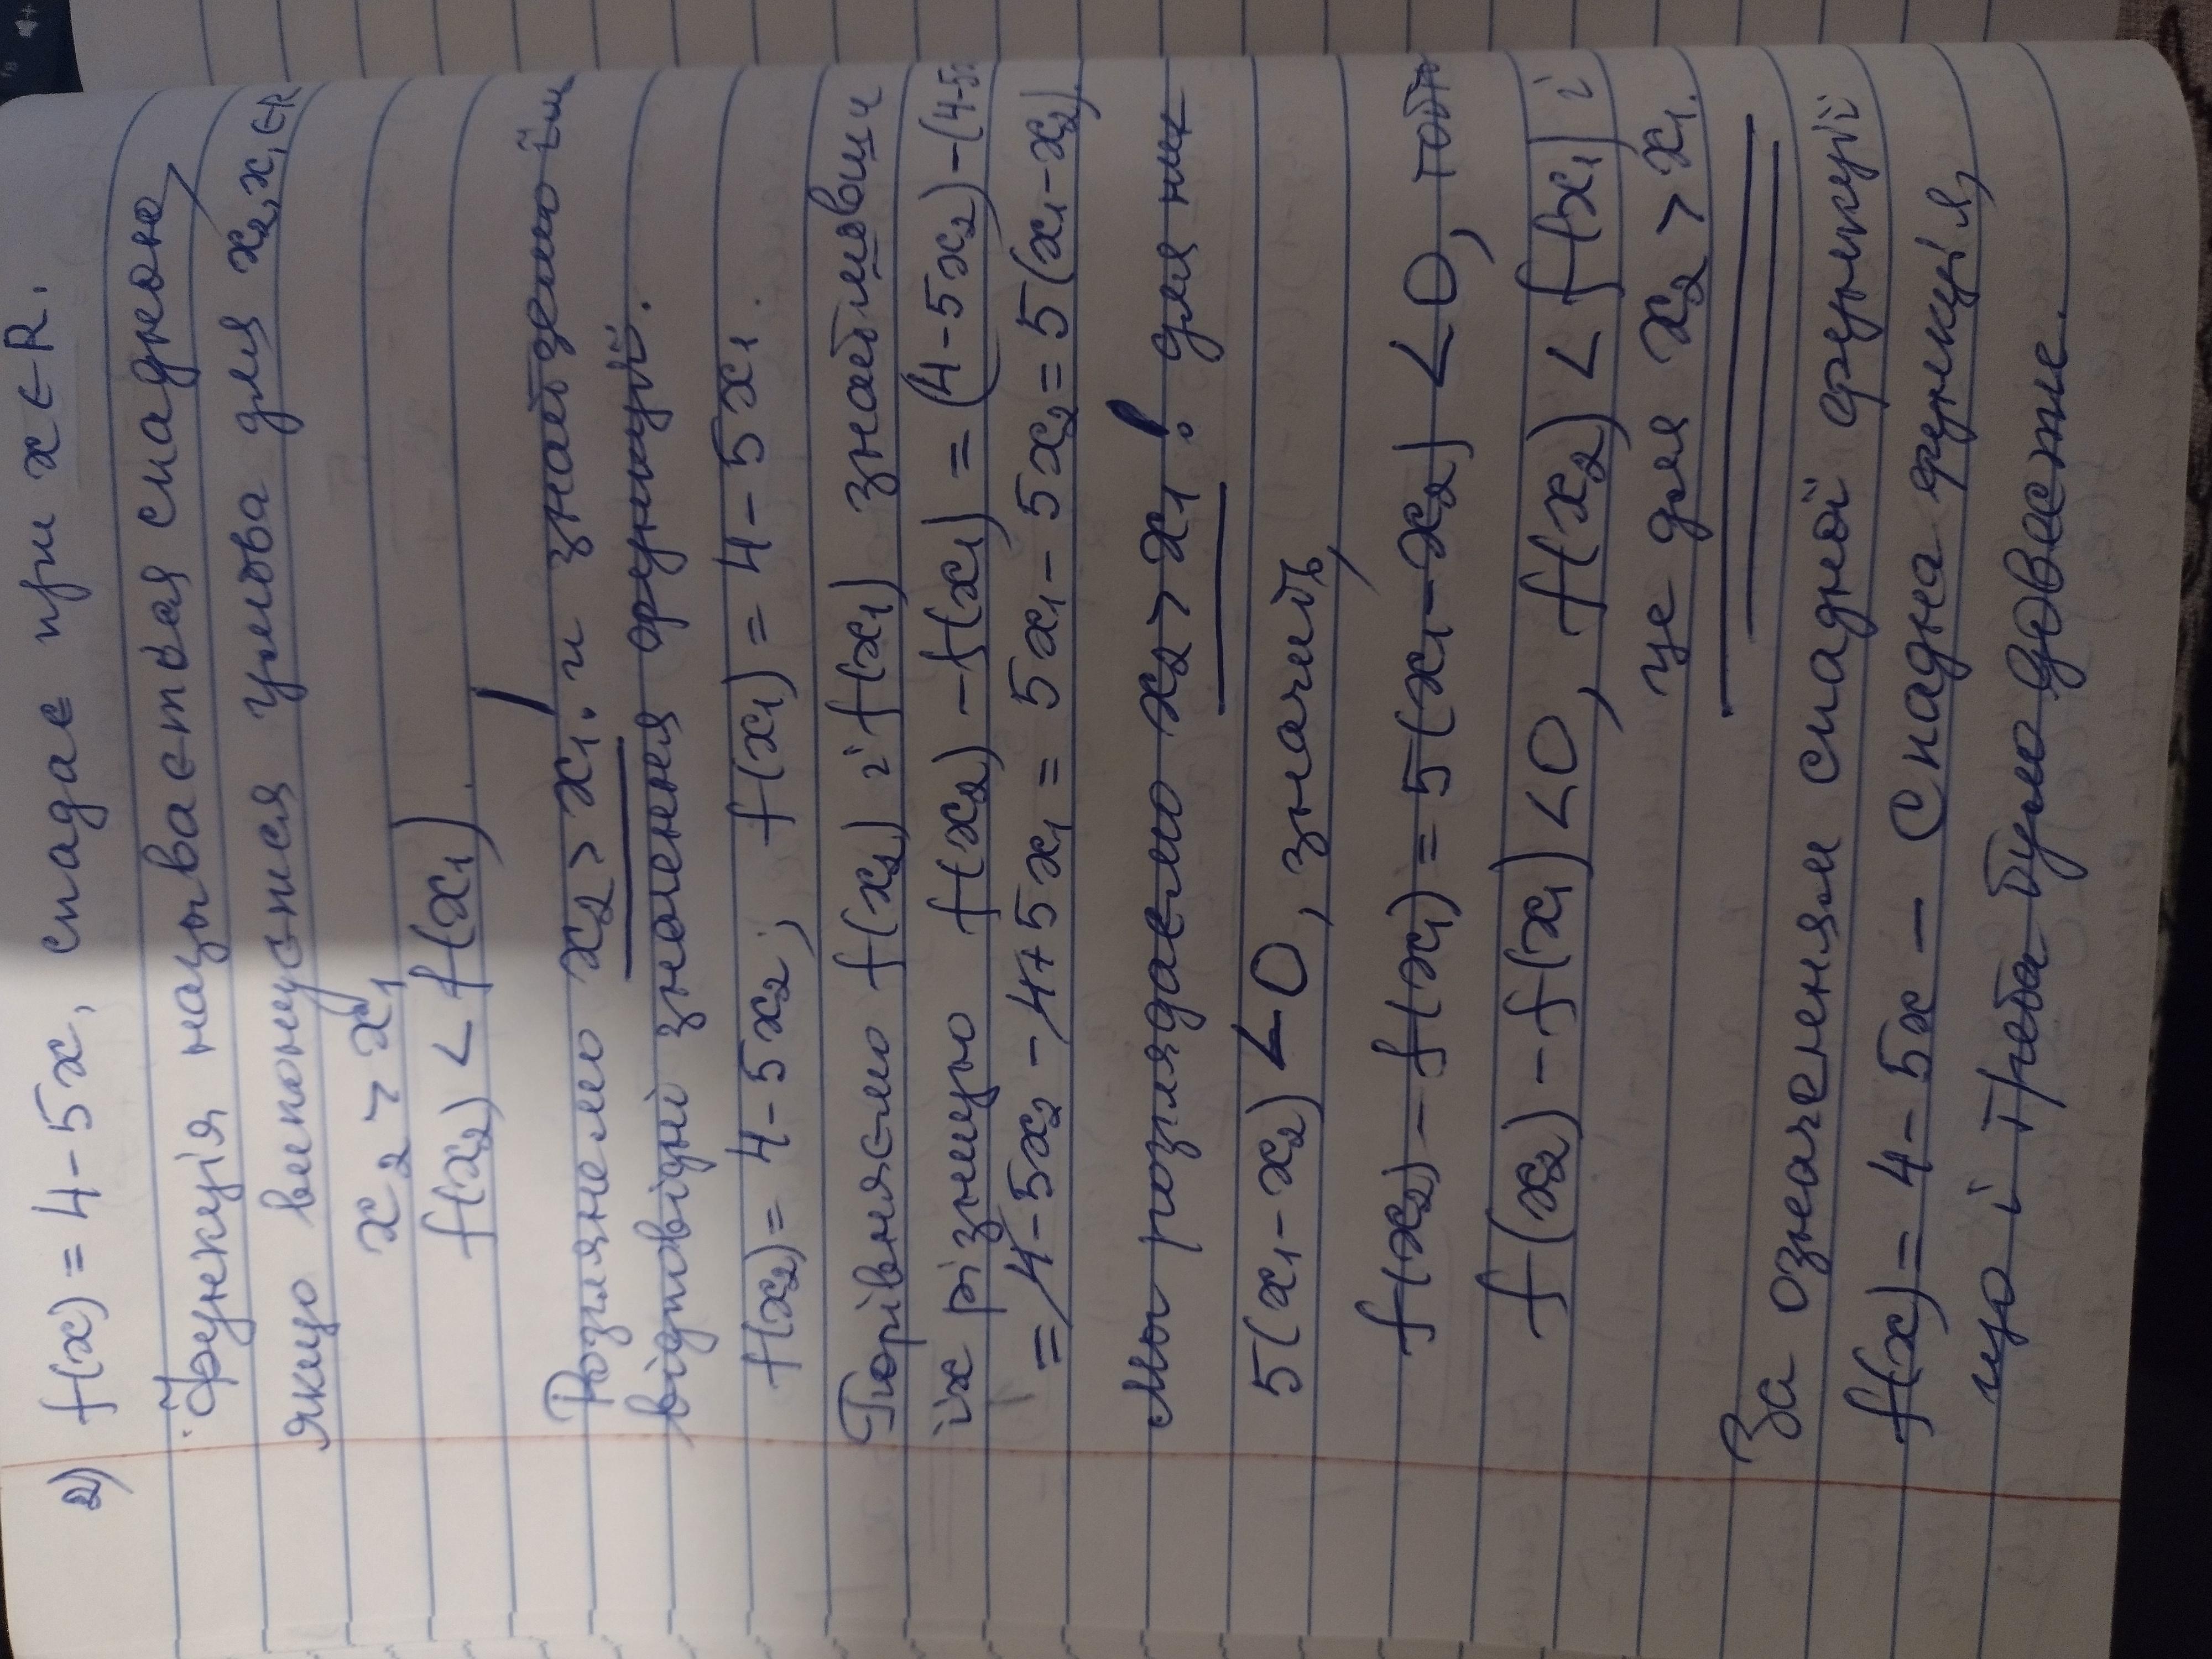 2) f(x) = 4 - 5x, спадає при x ∈ R.
Функція називається спадною,
якщо виконується умова для x₂, x₁ ∈ R
x₂ > x₁
f(x₂) < f(x₁).
Розглянемо x₂ > x₁. и знайдемо їм
відповідні значення функції.
f(x₂) = 4 - 5x₂; f(x₁) = 4 - 5x₁.
Порівняємо f(x₂) і f(x₁) знайшовши
їх різницю f(x₂) - f(x₁) = (4 - 5x₂) - (4 - 5x
= 4 - 5x₂ - 4 + 5x₁ = 5x₁ - 5x₂ = 5(x₁ - x₂).
Мы розглядаємо x₂ > x₁! для них
5(x₁ - x₂) < 0, значить,
f(x₂) - f(x₁) = 5(x₁ - x₂) < 0, тобто
f(x₂) - f(x₁) < 0, f(x₂) < f(x₁) і
це для x₂ > x₁.
За означенням спадної функції
f(x) = 4 - 5x - спадна функція,
що і треба було довести.